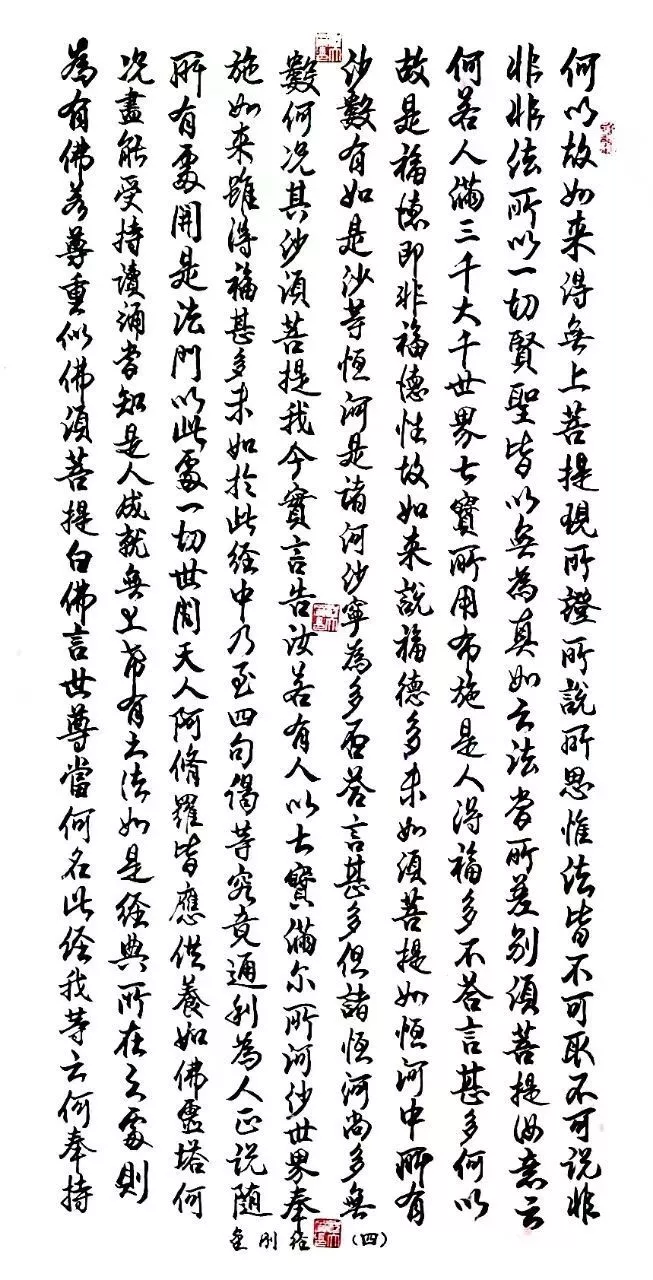 何以故如来得無上菩提現所證所說所思惟法皆不可取不可说非
非非法所以一切賢聖皆以無為真如之法当所差别須菩提汝意云
何若人满三千大千世界七寶所用布施是人得福多不答言甚多何以
故是福德即非福德性故如来說福德多来如須菩提如恒河中所有
沙數有如是沙等恒河是諸河沙寧為多否答言甚多但諸恒河尚多無
數何况其沙須菩提我今實言告汝若有人以七寶满尔所河沙世界奉
施如来雖得福甚多未如於此经中乃至四句偈等究竟通利為人正说随
所有處開是法門以此處一切世間天人阿脩羅皆應供養如佛靈塔何
况盡能受持读诵当知是人成就無上希有之法如是经典所在之處則
為有佛若尊重似佛須菩提白佛言世尊當何名此经我等云何奉持
金刚经（四）